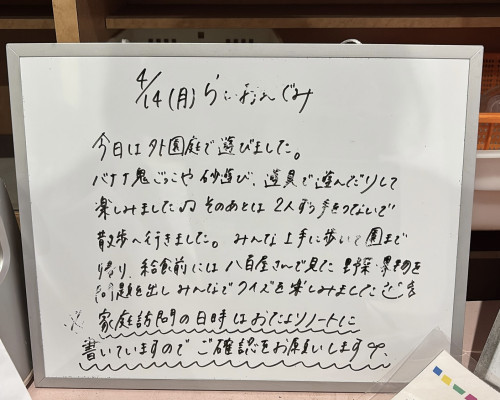 4/14(月) らいおんぐみ
今日は外園庭で遊びました。
バナナ鬼ごっこや砂遊び、遊具で遊んだりして
楽しみました♫ そのあとは2人ずつ手をつないで
散歩へ行きました。みんな上手に歩いて園まで
帰り、給食前には八百屋さんで見た野菜・果物を
問題を出しみんなでクイズを楽しみました
※家庭訪問の日時はおたよりノートに
書いていますのでご確認をお願いします